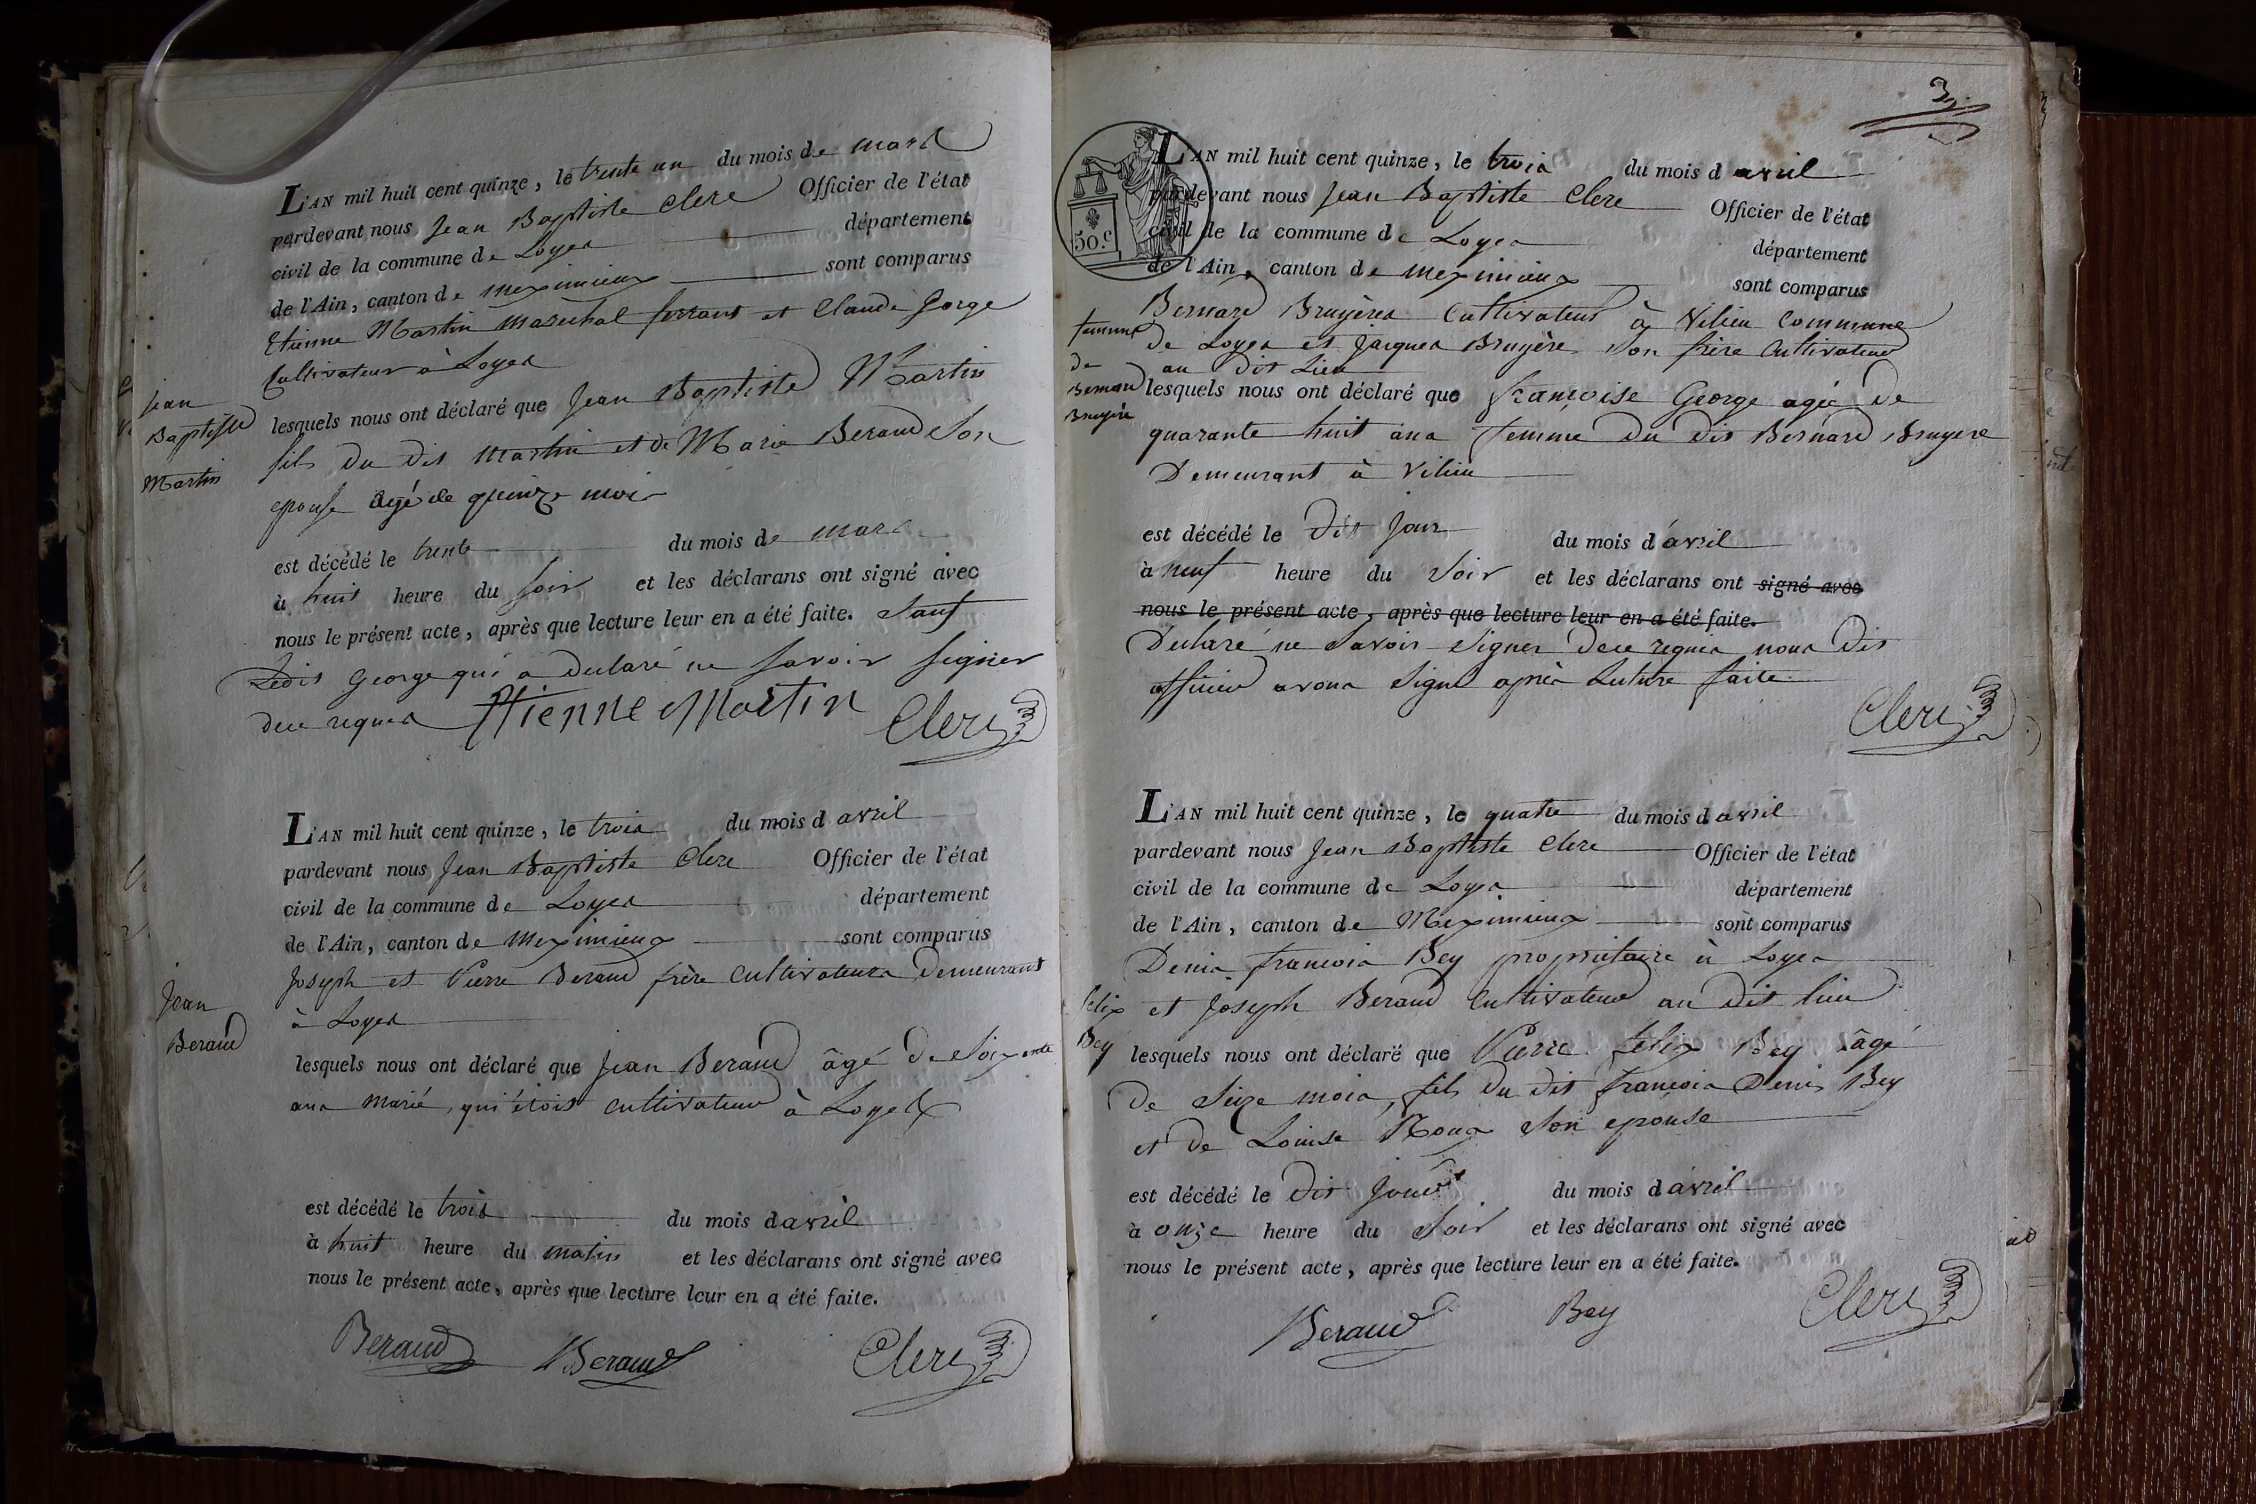 L'AN mil huit cent quinze, le trente un du mois de mars
pardevant nous Jean Baptiste Clerc Officier de l'état
civil de la commune de Loyes département
de l'Ain, canton de meximieux sont comparus
Etienne Martin marechal ferrant et Claude George
Cultivateur à Loyes
Jean
Baptiste
Martin
lesquels nous ont déclaré que Jean Baptiste Martin
fils du dit Martin et de Marie Beraud son
epouse âgé de quinze mois
est décédé le trente du mois de mars
à huit heure du soir et les déclarans ont signé avec
nous le présent acte, après que lecture leur en a été faite. Sauf
Ledit George qui a declaré ne savoir signer
dece requis Etienne Martin Clerc
L'AN mil huit cent quinze, le trois du mois d avril
pardevant nous Jean Baptiste Clerc Officier de l'état
civil de la commune de Loyes département
de l'Ain, canton de Meximieux sont comparus
Joseph et Pierre Beraud frère cultivateurs demeurant
à Loyes
Jean
Beraud
lesquels nous ont déclaré que Jean Beraud âgé de soixante
ans marié, qui étoit cultivateur à Loyes
est décédé le trois du mois d avril
à huit heure du matin et les déclarans ont signé avec
nous le présent acte, après que lecture leur en a été faite.
Beraud Beraud Clerc
3
50 c
L'AN mil huit cent quinze, le trois du mois d avril
pardevant nous Jean Baptiste Clerc Officier de l'état
civil de la commune de Loyes département
de l'Ain, canton de meximieux sont comparus
Bernard Bruyères Cultivateur à Vilieu Commune
de Loyes et Jacques Bruyère son frère Cultivateur
au dit Lieu
femme
de
Bernard
Bruyère
lesquels nous ont déclaré que françoise George agée de
quarante huit ans femme du dit Bernard Bruyere
Demeurant à Vilieu
est décédé le dit jour du mois d avril
à neuf heure du soir et les déclarans ont signé avec
nous le présent acte, après que lecture leur en a été faite.
Declaré ne savoir signer dece requis nous dit
officier avons signé après lecture faite
Clerc
L'AN mil huit cent quinze, le quatre du mois d avril
pardevant nous Jean Baptiste Clerc Officier de l'état
civil de la commune de Loyes département
de l'Ain, canton de Meximieux sont comparus
Denis françois Bey propriétaire à Loyes
et Joseph Beraud Cultivateur au dit lieu
felix
Bey
lesquels nous ont déclaré que Pierre felix Bey âgé
de Seize mois, fils du dit françois Denis Bey
et de Louise Roux son epouse
est décédé le dit jour du mois d avril
à onze heure du Soir et les déclarans ont signé avec
nous le présent acte, après que lecture leur en a été faite.
Beraud Bey Clerc